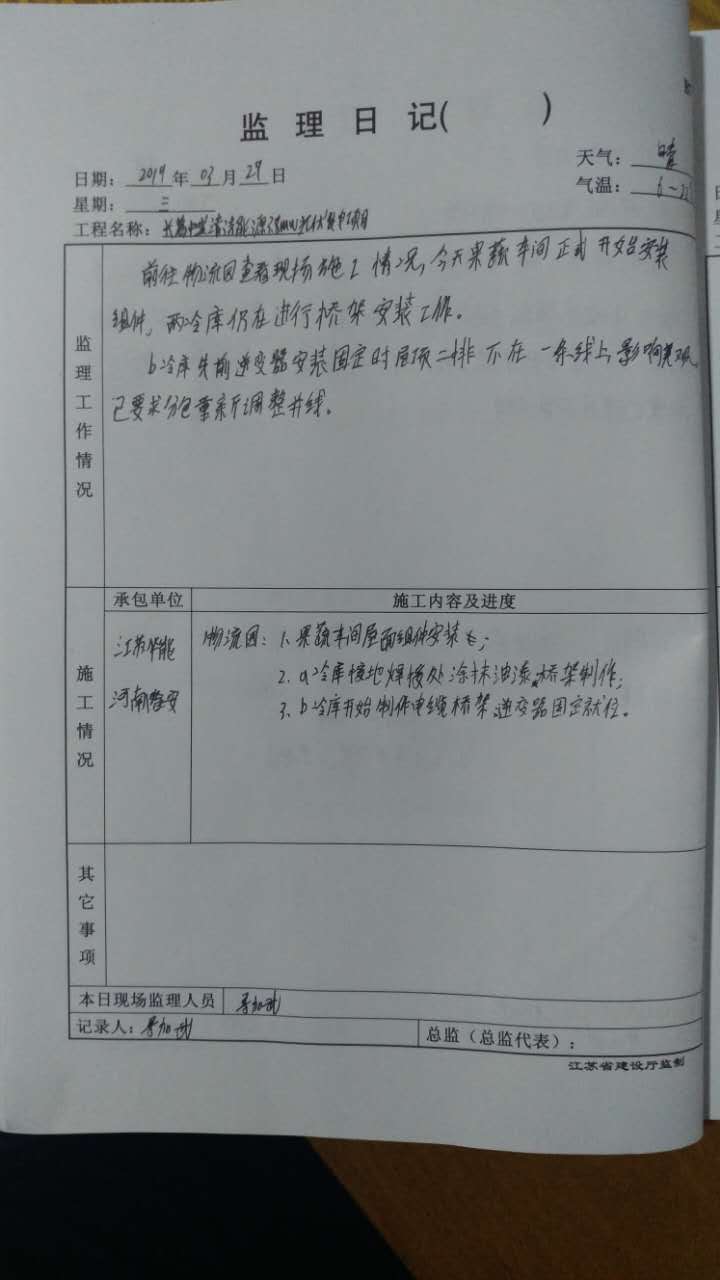 监理日记( )
日期： 2019 年 03 月 29 日
天气： 晴
星期： 三
气温： 6～
工程名称： 清洁能源 项目
监理工作情况
前往物流园查看现场施工情况，今天果蔬车间正式开始安装
组件，两冷库仍在进行桥架安装工作。
b冷库先前逆变器安装固定时屋顶二排不在一条线上，影响美观，
已要求分包重新调整并线。
施工情况
承包单位 施工内容及进度
江苏华能
河南
物流园：1、果蔬车间屋面组件安装；
2、a冷库接地焊接处涂抹油漆，桥架制作；
3、b冷库开始制作电缆桥架，逆变器固定就位。
其它事项
本日现场监理人员
记录人：
总监（总监代表）：
江苏省建设厅监制